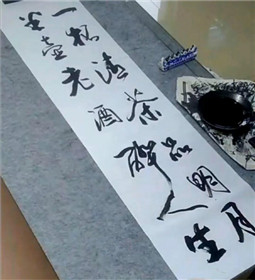 一杯清茶品明月
半壶老酒醉人生